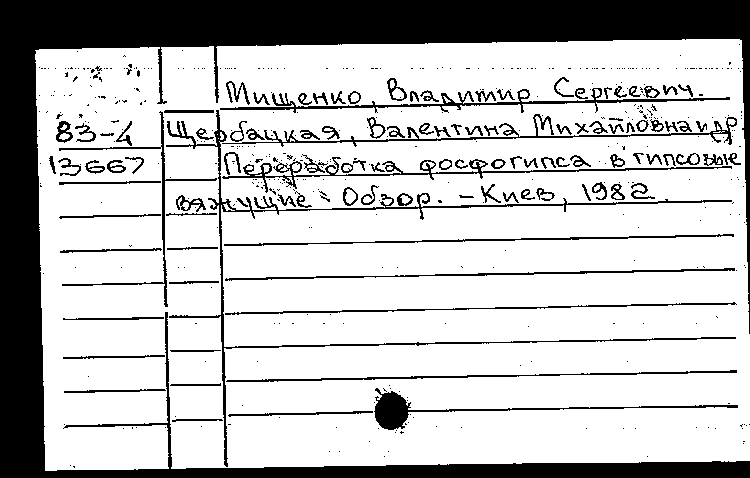 Мищенко, Владимир Сергеевич.
83-4 Щербацкая, Валентина Михайловна и др
13667 Переработка фосфогипса в гипсовые
вяжущие : Обзор. - Киев, 1982.